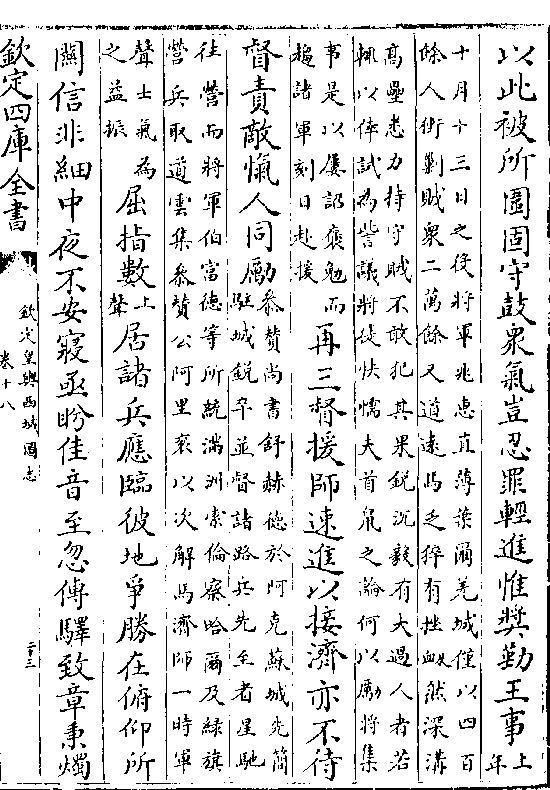 以此被所圍固守鼓衆氣豈忍罪輕進惟奬勤王事
上
年
十月十三日之役將軍兆惠直薄葉爾羌城僅以四百
餘人衝剿賊衆二萬餘又道遠馬乏猝有挫衂然深溝
高壘悉力持守賊不敢犯其果鋭沉毅有大過人者若
輒以倖試為訾議將徒怏懦夫首鼠之論何以勵將集
事是以屢詔褒勉而
趨諸軍刻日赴援
再三督援師速進以接濟亦不待
督責敵愾人同勵
參贊尚書舒赫徳於阿克蘇城先簡
駐城鋭卒並督諸路兵先至者星馳
往營而將軍伯富徳等所統滿洲索倫察哈爾及緑旗
營兵取道雲集參贊公阿里衮以次解馬濟師一時軍
聲士氣為
之益振
屈指數
上
聲
居諸兵應臨彼地爭勝在俯仰所
關信非細中夜不安寢亟盼佳音至忽傳驛致章秉燭
欽定四庫全書
欽定皇輿西域圖志
卷十八
二十三